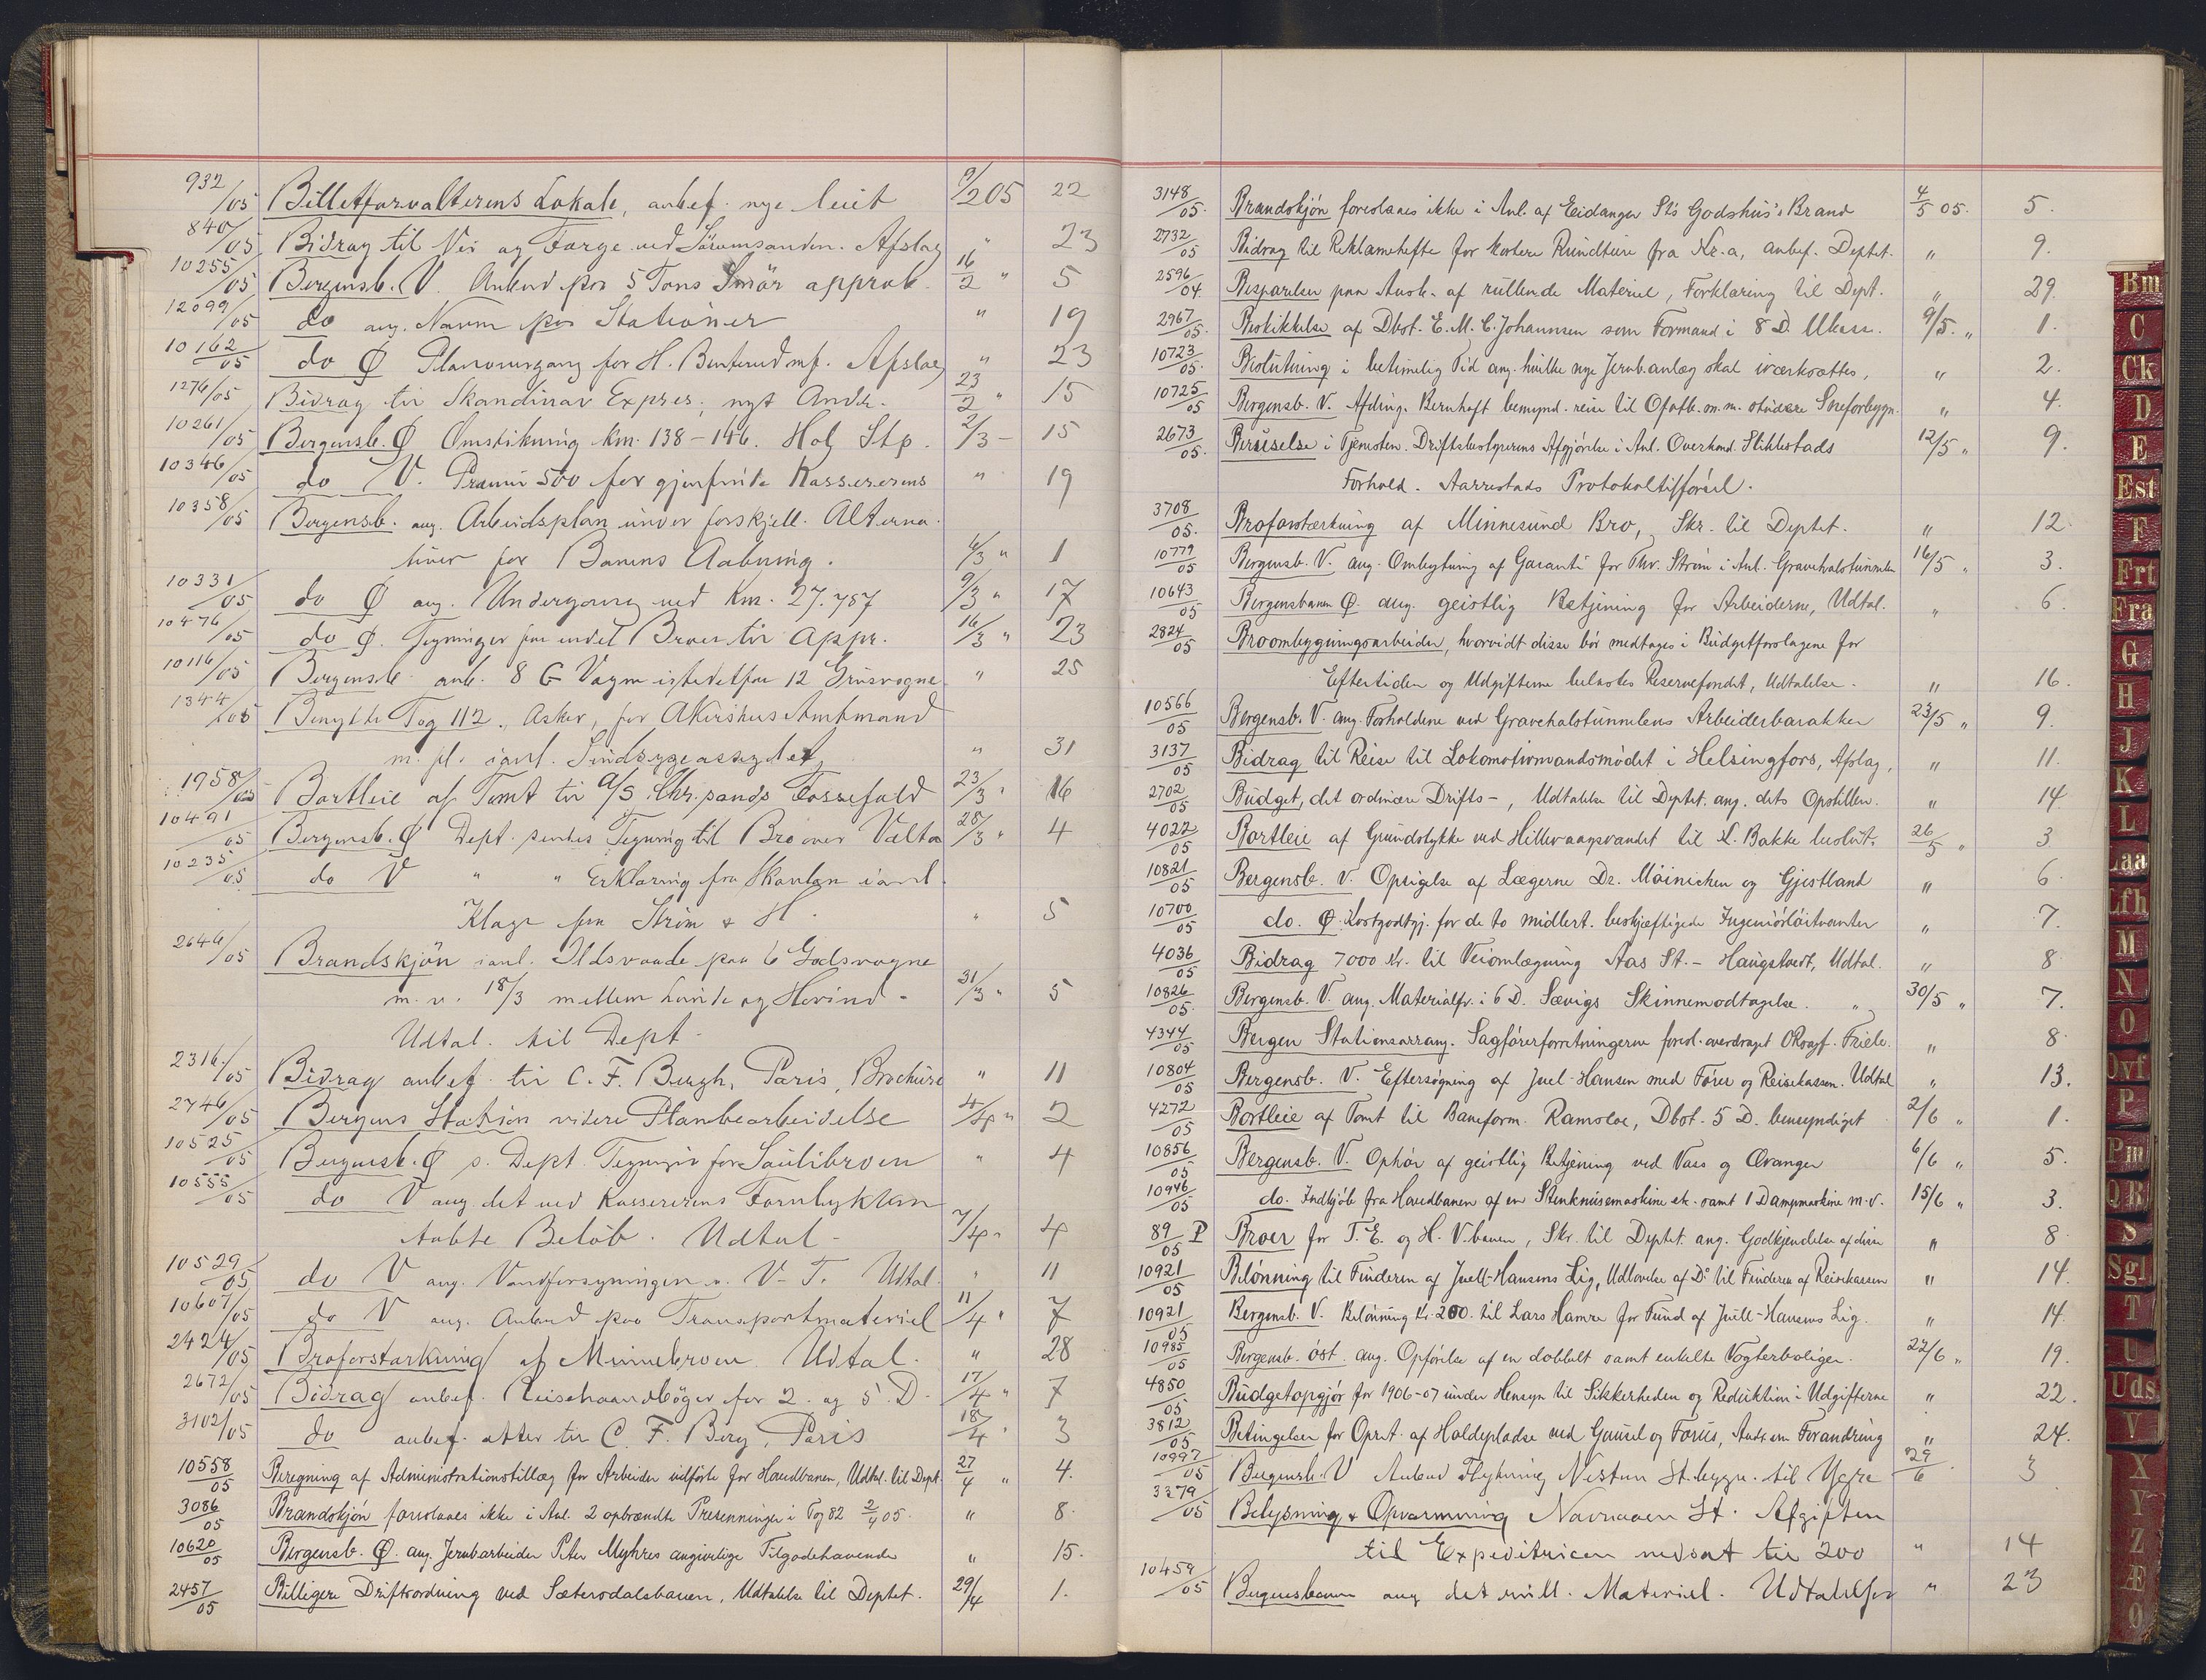 932/05 Billetforvalterens Lokale, anbef. nye leiet 9/2 05 22
840/05 Bidrag til Vei og Færge ved Sørumsanden. Afslag " 23
10255/05 Bergensb. V. Anbud paa 5 Tons Smør approb. 16/2 " 5
12099/05 do ang. Navne paa Stationer " 19
10162/05 do Ø Planovergang for H. Afslag " 23
1276/05 Bidrag til Skandinav Expres, nyt Andr. 23/2 " 15
10261/05 Bergensb. Ø Omstikning km. 138-146. Hol Stp. 2/3 - 15
10346/05 do V. Præmie 500 for gjenfinde Kassererens " 19
10358/05 Bergensb. ang. Arbeidsplan under forskjell. Alterna-
tiver for Banens Aabning. 6/3 " 1
10331/05 do Ø ang. Undergang ved Km. 27.787 9/3 " 17
10476/05 do Ø. Tegninger paa endel Broer til Appr. 16/3 " 23
10116/05 Bergensb. anb. 8 G Vogne istedetfor 12 Grusvogne " 25
1344/05 Benytte Tog 112, Asker, for Akershus Amtmand
m. fl. ianl. Sindssygeasylet " 31
1958/05 Bortleie af Tomt til A/S Chr.sands Fossefald 23/3 " 16
10491/05 Bergensb. Ø Dept. sendes Tegning til Bro over Votna 28/3 " 4
10235/05 do V " " Erklæring fra Skavlan ianl.
Klage fra Strøm & H. " 5
2646/05 Brandskjøn ianl. Ildsvaade paa 6 Godsvogne
m. v. 18/3 mellem og Hovind - 31/3 " 5
Udtal. til Dept.
2316/05 Bidrag anbef. til C. F. Bergh, Paris, Brochure " 11
2746/05 Bergens Station videre Planbearbeidelse 4/4 " 2
10525/05 Bergensb. Ø s. Dept. Tegninger for Saulibroen " 4
10555/05 do V ang. det ved Kassererens
tabte Beløb. Udtal - 7/4 " 4
10529/05 do V ang. Vandforsyningen v. V-T. Udtal. " 11
10607/05 do V ang. Anbud paa Transportmateriel 11/4 " 7
2424/05 Broforstærkning af Minnebroen. Udtal. " 28
2672/05 Bidrag anbef. Reisehaandbøger for 2. og 5. D. 17/4 " 7
3102/05 do anbef. atter til C. F. Berg, Paris 18/4 " 3
10558/05 Beregning af Administrationstillæg for Arbeider udførte for Hovedbanen, Udtal. til Dept. 27/4 " 4.
3086/05 Brandskjøn foreslaaes ikke i Anl. 2 opbrændte Presenninger i Tog 82 2/4 05. " 8.
10620/05 Bergensb. Ø. ang. Jernbarbeider Peter Myhres angivelige Tilgodehavende " 15.
2457/05 Billigere Driftsordning ved Sætersdalsbanen, Udtalelse til Deptet. 29/4 1.
3148/05. Brandskjøn foreslaaes ikke i Anl. af Eidanger St's Godshus's Brand 4/5 05. 5.
2732/05 Bidrag til Reklamehefte for kortere Rundture fra Kr.a, anbef. Deptet. " 9.
2596/04. Besparelser paa Ausb. af rullende Materiel, Forklaring til Dept. " 29.
2967/05. Beskikkelse af Dbst. E. M. C. Johannsen som Formand i 8 D. Ukass. 9/5. " 1.
10723/05. Beslutning i betimelig Tid ang. hvilke nye Jernb.anlæg skal iværksættes, " 2.
10725/05 Bergensb. V. Afding. Bernhoft bemynd. reise til Ofotb. m.m. studere Sneforbygn. " 4.
2673/05. Beruselse i Tjenesten. Driftsbestyrerens Afgjørelse i Anl. Overkond. Stiklestads 12/5 " 9.
Forhold. Aarrestads Protokoltilførsel.
3708/05. Broforstærkning af Minnesund Bro, Skr. til Deptet. " 12.
10779/05 Bergensb. V. ang. Ombytning af Garanti for Thv. Strøm i Anl. Gravehalstunnelen 16/5 " 3.
10643/05 Bergensbanen Ø. ang. geistlig Betjening for Arbeiderne, Udtal. " 6.
2824/05 Broombygningsarbeider, hvorvidt disse bør medtages i Budgetforslagene for
Eftertiden og Udgifterne belastes Reservefondet, Udtalelse. " 16.
10566/05 Bergensb. V. ang. Forholdene ved Gravehalstunnelens Arbeiderbarakker 23/5 " 9.
3137/05 Bidrag til Reise til Lokomotivmandsmødet i Helsingfors, Afslag, " 11.
2702/05 Budget, det ordinære Drifts-, Udtalelse til Deptet. ang. dets Opstillen. " 14.
4022/05 Bortleie af Grundstykke ved Hillevaagsvandet til K. Bakke beslut. 26/5 " 3
10821/05 Bergensb. V. Opsigelse af Lægerne Dr. Möinichen og Gjestland " 6.
10700/05 do. Ø. Kostgodtgj. for de to midlert. beskjæftigede Ingeniørløitnanter " 7.
4036/05 Bidrag 7000 Kr. til Veiomlægning Aas St. - Haugstvedt, Udtal. " 8
10826/05. Bergensb. V. ang. Materialfv. i 6 D. Sævigs Skinnemodtagelse. " 30/5 " 7.
4344/05 Bergen Stationsarrang. Sagførerforretningerne foresl. overdraget ORsagf. Friele. " 8.
10804/05 Bergensb. V. Eftersøgning af Juel-Hansen med Fører og Reisekassen. Udtal " 13.
4272/05 Bortleie af Tomt til Baneform. Ramsloe, Dbst. 5 D. bemyndiget 2/6 " 1.
10856/05 Bergensb. V. Ophør af geistlig Betjening ved Voss og Ørvanger 6/6 " 5.
10946/05 do. Indkjøb fra Hovedbanen af en Stenknusemaskine etc. samt 1 Dampmaskine m.v. 15/6 " 3.
89/05 P Broer for T. E. og H. V.banen, Skr. til Deptet. ang. Godkjendelse af disse " 8
10921/05 Belønning til Finderen af Juell-Hansens Lig, Udlovelse af Do til Finderen af Reisekassen " 14.
10921/05 Bergensb. V. Belønning kr. 200. til Lars Hamre for Fund af Juell-Hansens Lig. " 14.
10985/05 Bergensb. øst. ang. Opførelse af en dobbelt samt enkelte Vogterboliger. 22/6 " 19.
4850/05. Budgetopgjør for 1906-07 under Hensyn til Sikkerheden og Reduktion i Udgifterne " 22.
3812/05 Betingelser for Opret. af Holdepladse ved Gausel og Forus, Andr. om Forandring " 24.
10997/05 Bergensb. V Anbud Flytning Nestun St.bygn. til Ygre 29/6 3
3379/05 Belysning & Opvarmning Navnaaen St. Afgiften
til Expeditricen nedsat til 200 " 14
10459/05 Bergensbanen ang. det rull. Materiel. Udtalelse " 23
Bm
C
Ck
D
E
Est
F
Frt
Fra
G
H
J
K
L
Laa
Lfh
M
N
O
Ovf
P
Pm
QR
S
Sgl
T
U
Uds
V
X
Y
Z
Æ
Ø